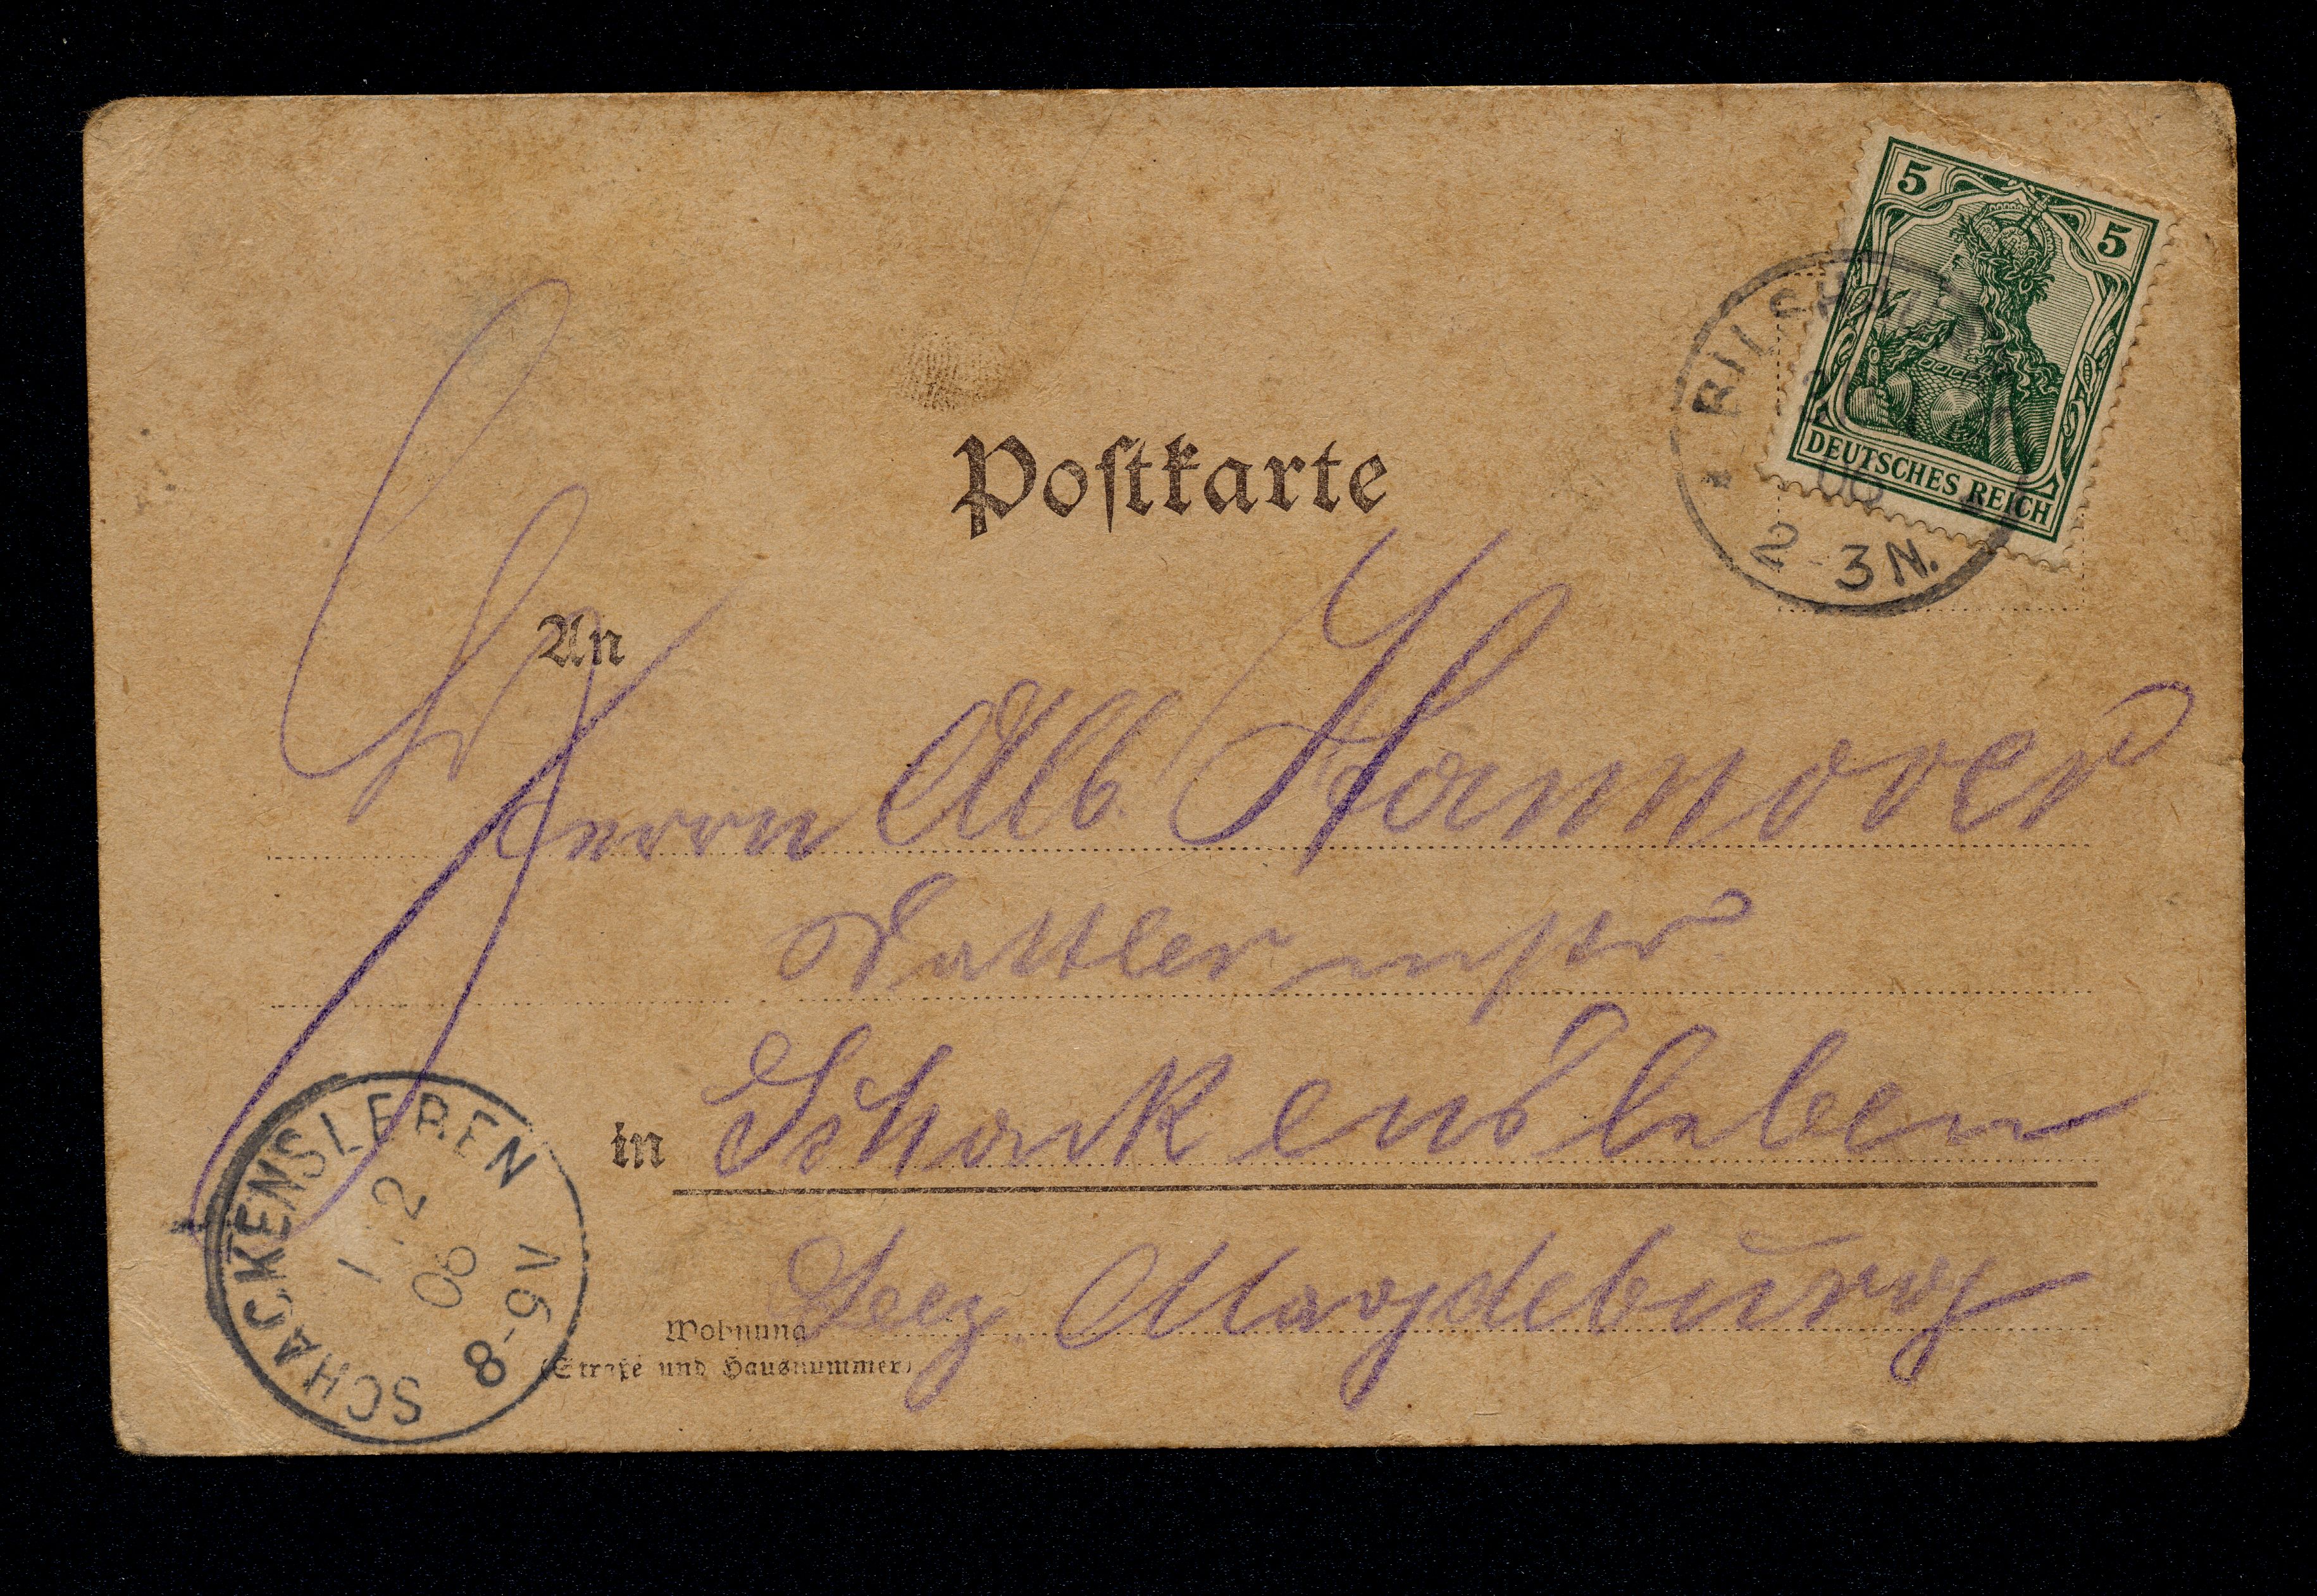 Postkarte
5 5
DEUTSCHES REICH
06
2-3N.
An
Herrn Alb. Hannover
Sattlermstr.
in Schackensleben
Bez. Magdeburg
Wohnung
(Straße und Hausnummer)
SCHACKENSLEBEN
1.2
06
8-9V